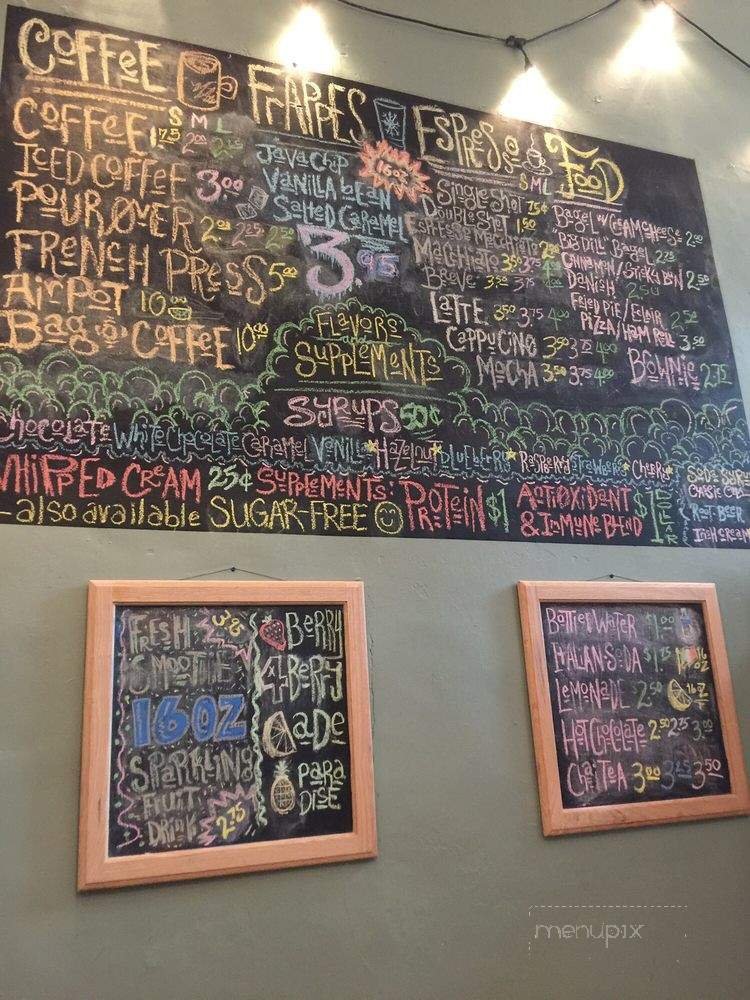 COFFEE
S M L
COFFEE 1.75 2.00 2.25
ICED COFFEE 3.00
POUR OVER 2.00 2.25 2.50
FRENCH PRESS 5.00
AIRPOT 10.00
BAG OF COFFEE 10.00
FRAPPES
16oz
JAVA CHIP
VANILLA BEAN
SALTED CARAMEL
3.95
ESPRESSO
S M L
SINGLE SHOT 75¢
DOUBLE SHOT 1.50
ESPRESSO MACCHIATO 2.00
MACCHIATO 3.50 3.75 4.00
BREVE 3.50 3.75 4.00
LATTE 3.50 3.75 4.00
CAPPUCINO 3.50 3.75 4.00
MOCHA 3.50 3.75 4.00
FOOD
BAGEL W/CREAMCHEESE 2.00
"BIG DILL" BAGEL 2.75
CINNAMON/STICKY BUN 2.50
DANISH 2.50
FRIED PIE/ECLAIR 2.50
PIZZA/HAM ROLL 3.50
BROWNIE 2.75
FLAVORS
and
SUPPLEMENTS
SYRUPS 50¢
CHOCOLATE WHITE CHOCOLATE CARAMEL VANILLA HAZELNUT BLUEBERRY RASPBERRY STRAWBERRY CHERRY
WHIPPED CREAM 25¢ SUPPLEMENTS: PROTEIN $1 ANTIOXIDENT & IMMUNE BLEND $1
- also available SUGAR-FREE
ROOT BEER
IRISH CREAM
FRESH
SMOOTHIE
16OZ
SPARKLING
FRUIT
DRINK
2.75
BERRY
4 BERRY
ADE
PARA
DISE
BOTTLED WATER $1.00
ITALIAN SODA $1.75 16 OZ
LEMONADE 2.50 16OZ
HOT CHOCOLATE 2.50 2.75 3.00
CHAI TEA 3.00 3.25 3.50
menupix